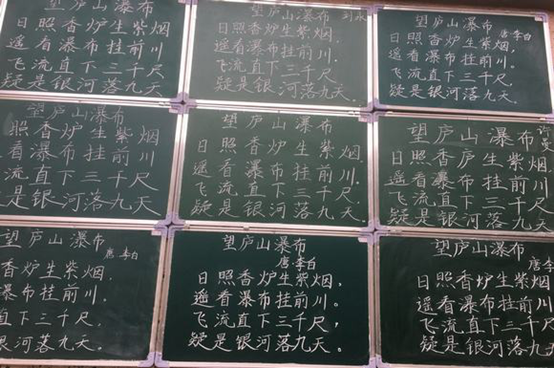 望庐山瀑布
日照香炉生紫烟
遥看瀑布挂前川
飞流直下三千尺
疑是银河落九天
望庐山瀑布
日照香炉生紫烟，
遥看瀑布挂前川。
飞流直下三千尺
疑是银河落九天
望庐山瀑布
唐李白
日照香炉生紫烟，
遥看瀑布挂前川。
飞流直下三千尺，
疑是银河落九天。
望庐山瀑布
照香炉生紫烟
看瀑布挂前川
流直下三千尺
是银河落九天
望庐山瀑布
日照香炉生紫烟
遥看瀑布挂前川
飞流直下三千尺
疑是银河落九天.
望庐山瀑布
日照香炉生紫烟
遥看瀑布挂前川
飞流直下三千尺
疑是银河落九天
望庐山瀑布
唐李白
香炉生紫烟,
瀑布挂前川.
直下三千尺,
河落九天.
望庐山瀑布
唐李白
日照香炉生紫烟，
遥看瀑布挂前川。
飞流直下三千尺，
疑是银河落九天。
望庐山瀑布
唐李
日照香炉生紫烟
遥看瀑布挂前川
飞流直下三千尺
疑是银河落九天